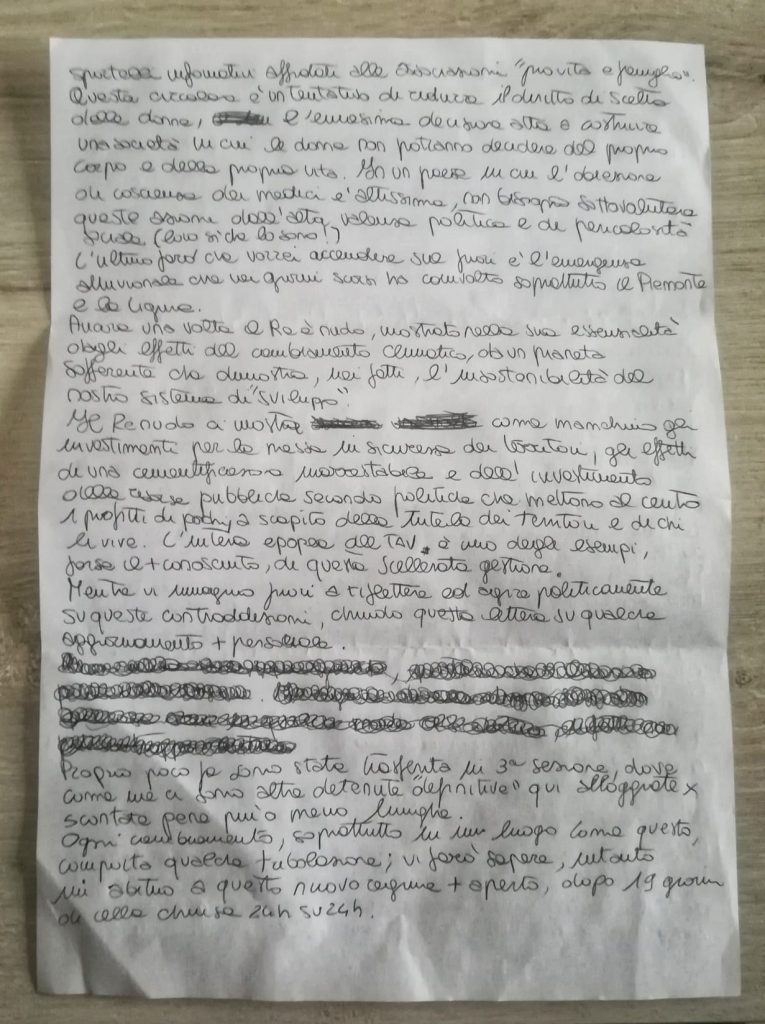 sportelli informativi affidati alle associazioni "pro vita e famiglia".
Questa circolare è un tentativo di ridurre il diritto di scelta
delle donne, l'ennesima decisione atta a costruire
una società in cui le donne non potranno decidere del proprio
corpo e della propria vita. In un paese in cui l'obiezione
di coscienza dei medici è altissima, non bisogna sottovalutare
queste azioni dall'alta valenza politica e di pericolosità
sociale (loro sì che lo sono!)
L'ultimo faro che vorrei accendere sul fuori è l'emergenza
alluvionale che nei giorni scorsi ha coinvolto soprattutto il Piemonte
e la Liguria.
Ancora una volta il Re è nudo, mostrato nella sua essenzialità
dagli effetti del cambiamento climatico, da un pianeta
sofferente che dimostra, nei fatti, l'insostenibilità del
nostro sistema di "sviluppo".
Il Re nudo ci mostra come manchino gli
investimenti per la messa in sicurezza dei territori, gli effetti
di una cementificazione inarrestabile e dell'investimento
delle risorse pubbliche secondo politiche che mettono al centro
i profitti di pochi, a scapito della tutela dei territori e di chi
li vive. L'intera epopea del TAV è uno degli esempi,
forse il + conosciuto, di questa scellerata gestione.
Mentre vi immagino fuori a riflettere ed agire politicamente
su queste contraddizioni, chiudo questa lettera su qualche
aggiornamento + personale.
Proprio poco fa sono stata trasferita in 3ª sezione, dove
come me ci sono altre detenute "definitive" qui alloggiate x
scontare pene più o meno lunghe.
Ogni cambiamento, soprattutto in un luogo come questo,
comporta qualche tribolazione; vi farò sapere, intanto
mi abituo a questo nuovo regime + aperto, dopo 19 giorni
di cella chiusa 24h su 24h.